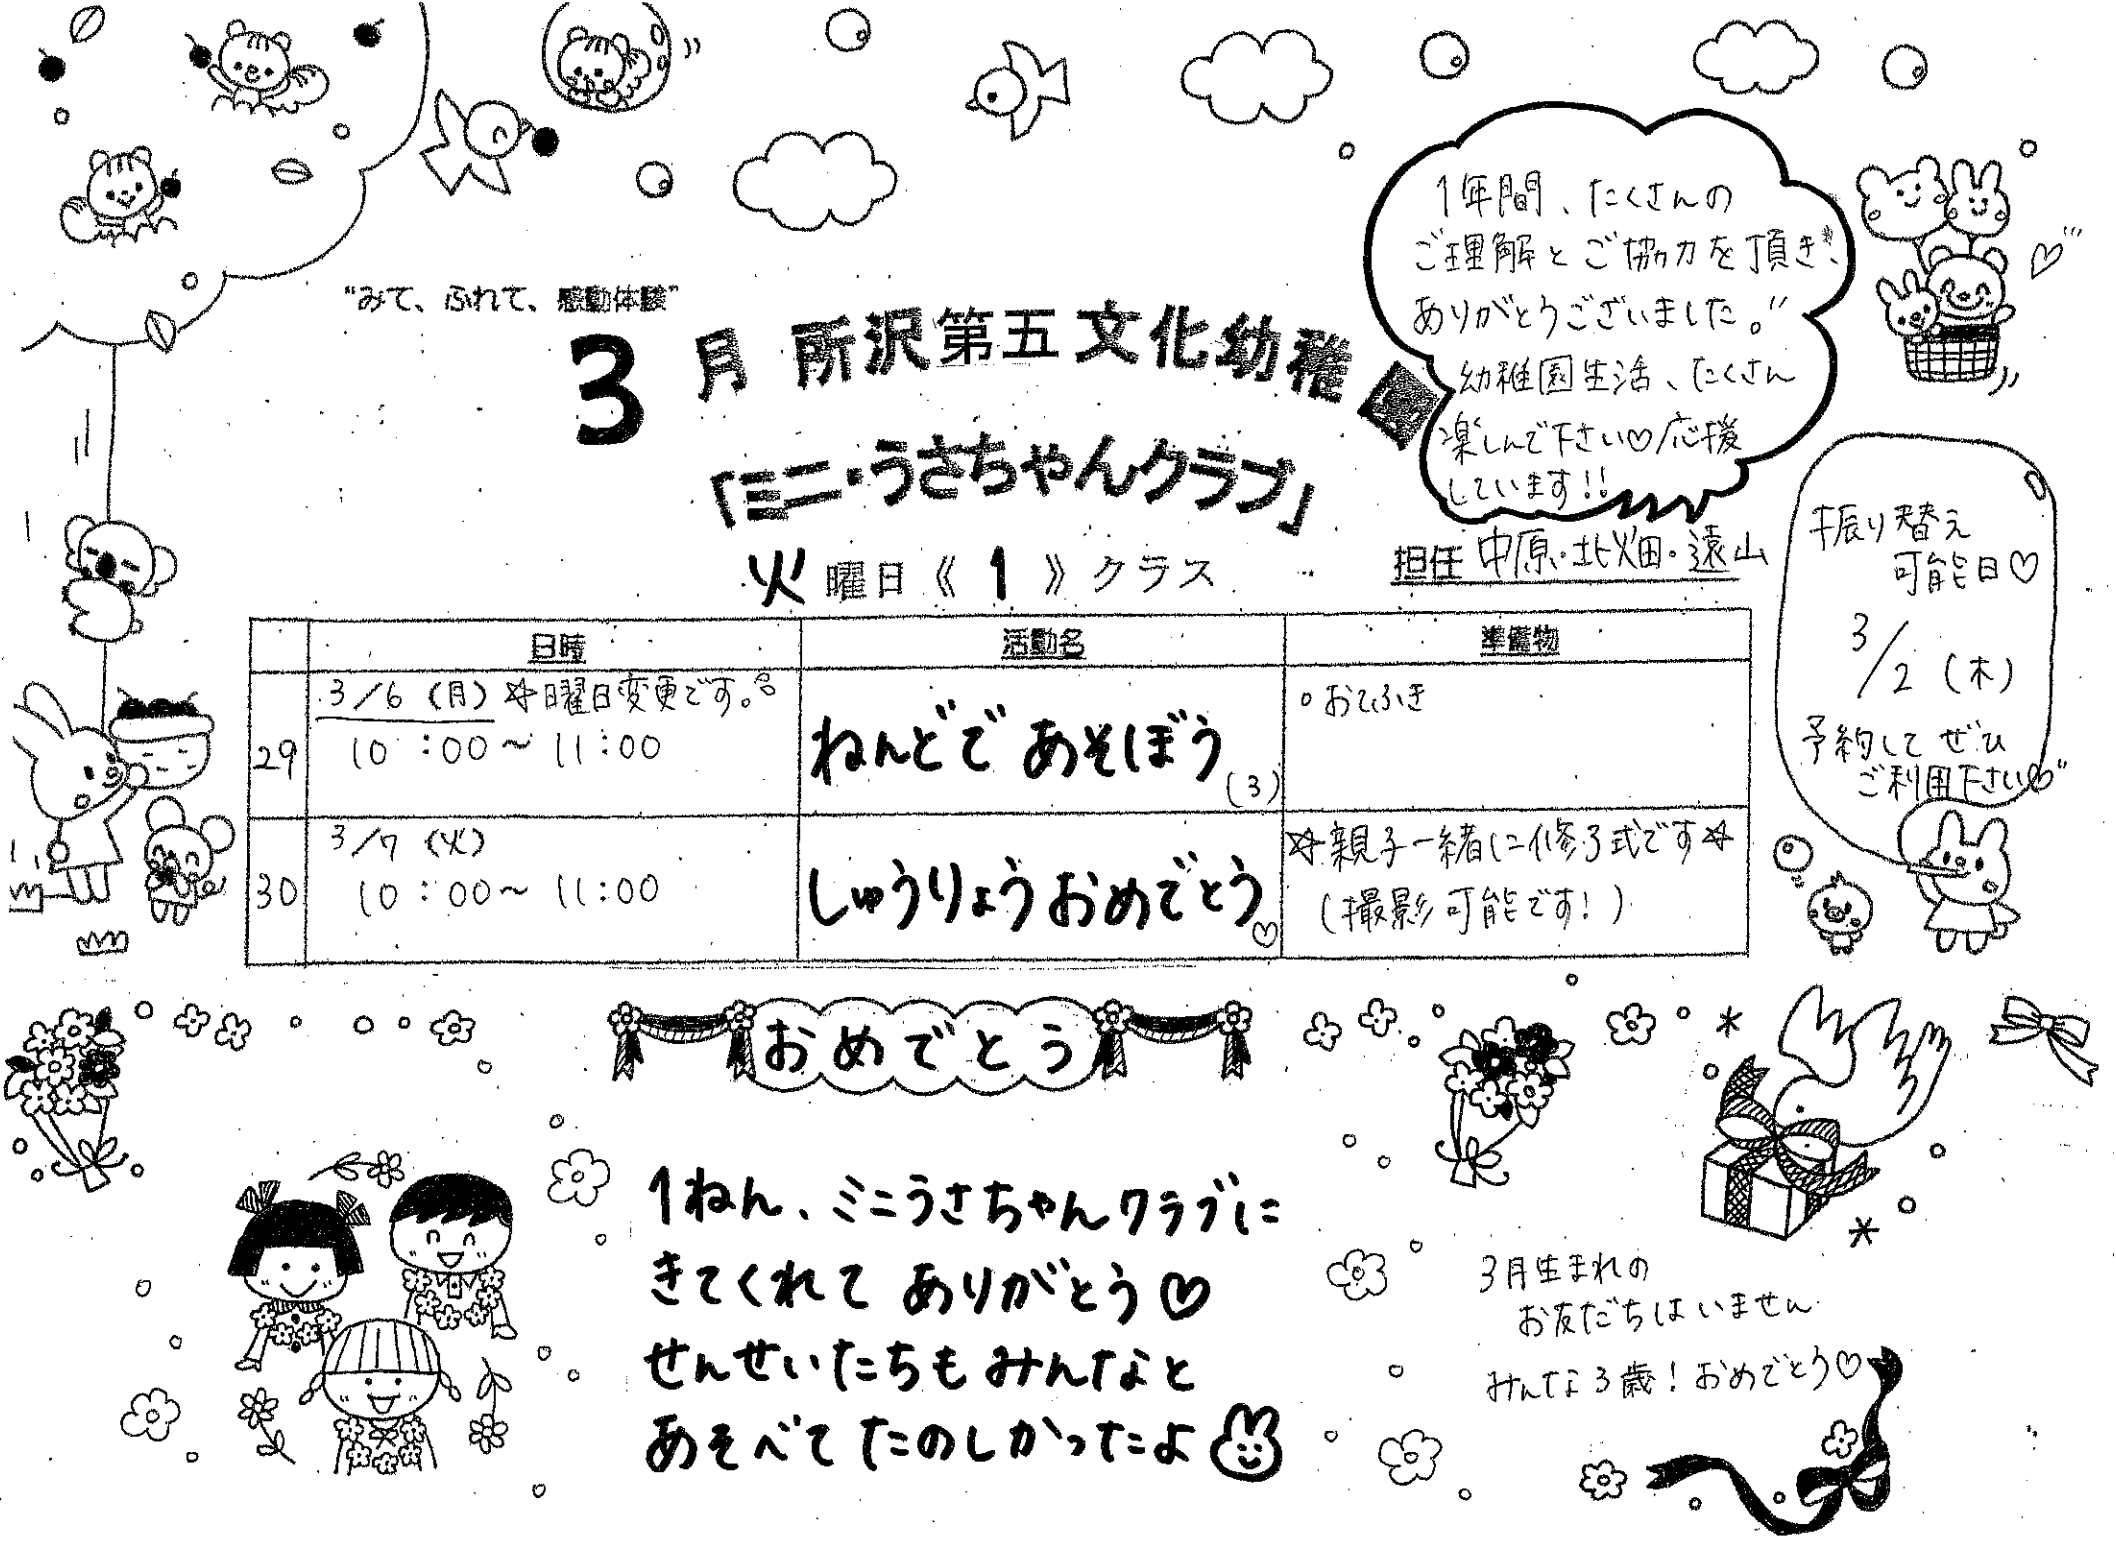 "みて、ふれて、感動体験"
3月 所沢第五文化幼稚園
「ミニ・うさちゃんクラブ」
火曜日《1》クラス
担任 中原・北畑・遠山
1年間、たくさんの
ご理解とご協力を頂き、
ありがとうございました。
幼稚園生活、たくさん
楽しんで下さい♡応援
しています!!
振り替え
可能日♡
3/2 (木)
予約して ぜひ
ご利用下さい♡
日時 活動名 準備物
29 3/6 (月) ☆曜日変更です。 ねんどで あそぼう (3) ○おてふき
10:00～11:00
30 3/7 (火) しゅうりょう おめでとう♡ ☆親子一緒に修了式です☆
10:00～11:00 (撮影可能です!)
おめでとう
1ねん、ミニうさちゃんクラブに
きてくれて ありがとう♡
せんせいたちも みんなと
あそべて たのしかったよ
3月生まれの
お友だちは いません
みんな3歳! おめでとう♡